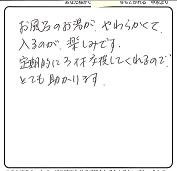 お風呂のお湯が、やわらかくて、
入るのが、楽しみです。
定期的にろ材を換してくれるので
とても助かります。